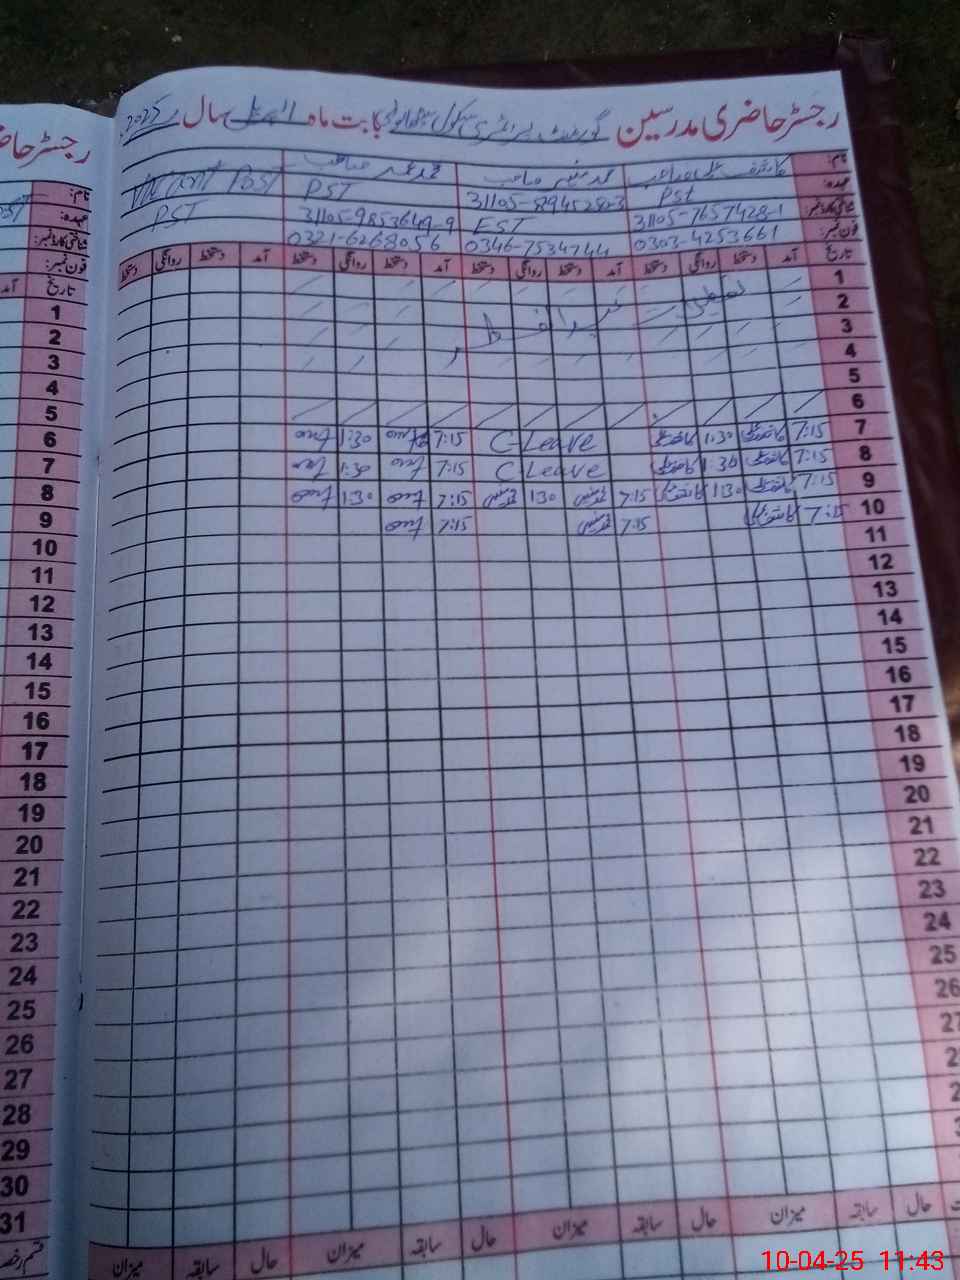 رجسٹر حاضری مدرسین گورنمنٹ پرائمری سکول بابت ماہ اپریل سال 2025
نام: کاشف محمد منیر صاحب محمد عمر صاحب Vacant Post
عہدہ: PST 31105-8945280-3 PST PST
شناختی کارڈ نمبر: 31105-7657428-1 EST 31105-9853649-9
فون نمبر: 0303-4253661 0346-7534744 0321-6268056
تاریخ آمد دستخط روانگی دستخط آمد دستخط روانگی دستخط آمد دستخط روانگی دستخط آمد دستخط روانگی دستخط
1
2 تعطیلات عید الفطر
3
4
5
6
7 7:15 کاشف 1:30 کاشف C-Leave 7:15 1:30
8 7:15 کاشف 1:30 کاشف C-Leave 7:15 1:30
9 7:15 کاشف 1:30 کاشف 7:15 1:30 7:15 1:30
10 7:15 کاشف 7:15 7:15
11
12
13
14
15
16
17
18
19
20
21
22
23
24
25
26
27
حال سابقہ میزان حال سابقہ میزان حال سابقہ میزان حال سابقہ میزان
رجسٹر حا
نام:
عہدہ:
شناختی کارڈ نمبر:
فون نمبر:
تاریخ آمد
1
2
3
4
5
6
7
8
9
10
11
12
13
14
15
16
17
18
19
20
21
22
23
24
25
26
27
28
29
30
31
10-04-25 11:43